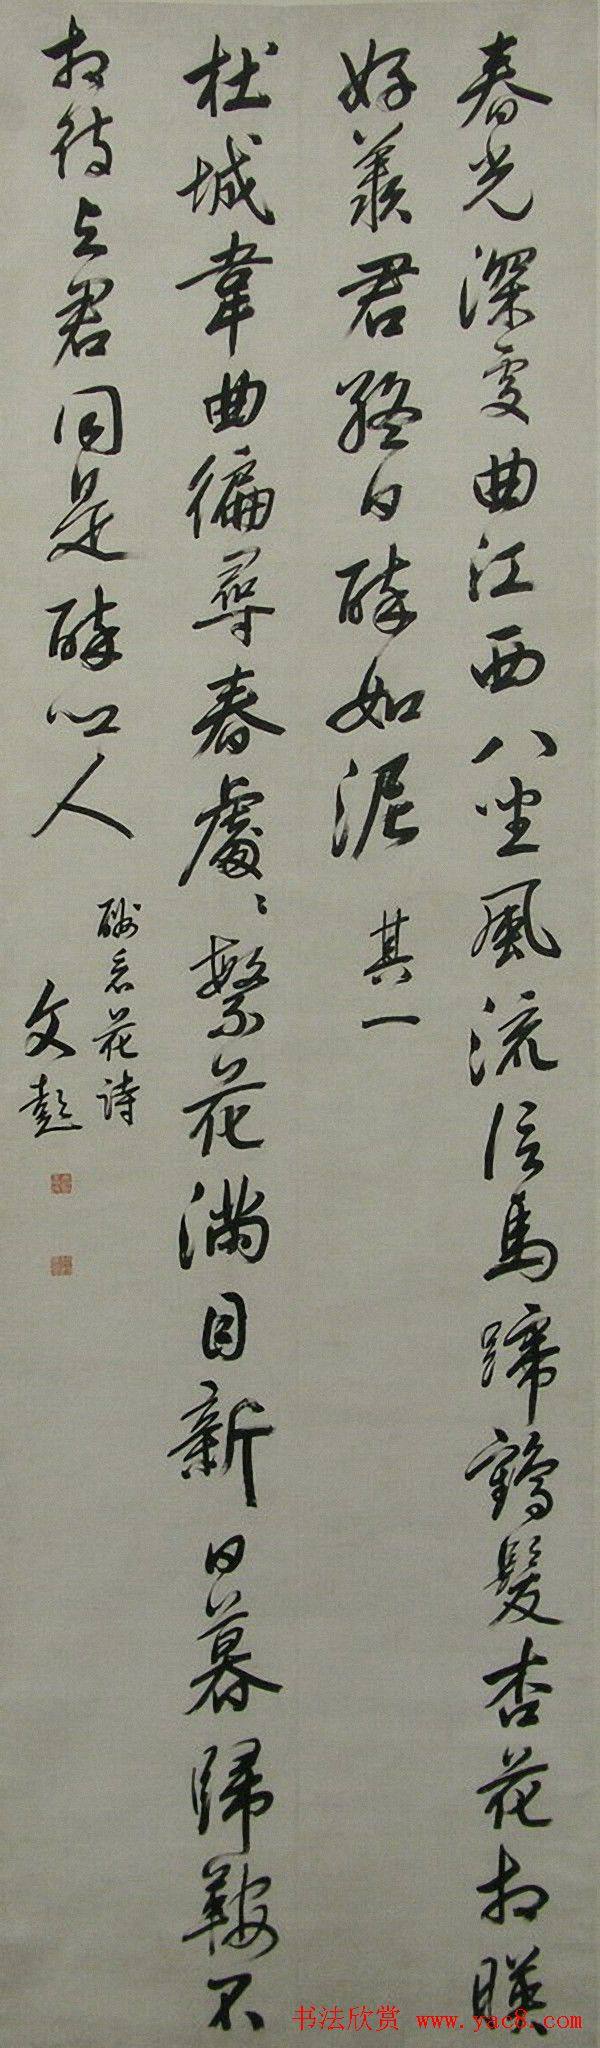 春光深處曲江西八坐風流信馬蹄鶴髮杏花相暎
好羨君終日醉如泥 其一
杜城韋曲徧尋春處〻繁花滿目新日暮歸鞍不
相待與君同是醉心人
酬看花詩
文彭
书法欣赏 www.yac8.com